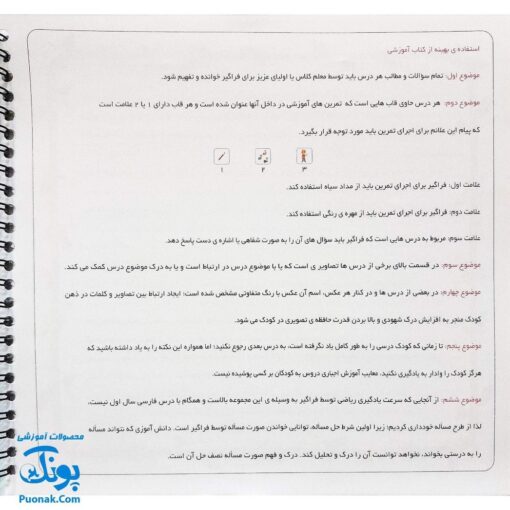 استفاده ی بهینه از کتاب آموزشی
موضوع اول: تمام سؤالات و مطالب هر درس باید توسط معلم کلاس یا اولیای عزیز برای فراگیر خوانده و تفهیم شود.
موضوع دوم: هر درس حاوی قاب هایی است که تمرین های آموزشی در داخل آنها عنوان شده است و هر قاب دارای ۱ یا ۲ علامت است
که پیام این علائم برای اجرای تمرین باید مورد توجه قرار بگیرد.
۳ ۲ ۱
علامت اول: فراگیر برای اجرای تمرین باید از مداد سیاه استفاده کند.
علامت دوم: فراگیر برای اجرای تمرین باید از مهره ی رنگی استفاده کند.
علامت سوم: مربوط به درس هایی است که فراگیر باید سؤال های آن را به صورت شفاهی یا اشاره ی دست پاسخ دهد.
موضوع سوم: در قسمت بالای برخی از درس ها تصاویر ی است که یا با موضوع درس در ارتباط است و یا به درک موضوع درس کمک می کند.
موضوع چهارم: در بعضی از درس ها و در کنار هر عکس، اسم آن عکس با رنگ متفاوتی مشخص شده است؛ ایجاد ارتباط بین تصاویر و کلمات در ذهن
کودک منجر به افزایش درک شهودی و بالا بردن قدرت حافظه ی تصویری در کودک می شود.
موضوع پنجم: تا زمانی که کودک درسی را به طور کامل یاد نگرفته است، به درس بعدی رجوع نکنید؛ اما همواره این نکته را به یاد داشته باشید که
هرگز کودک را وادار به یادگیری نکنید، معایب آموزش اجباری دروس به کودکان بر کسی پوشیده نیست.
موضوع ششم: از آنجایی که سرعت یادگیری ریاضی توسط فراگیر به وسیله ی این مجموعه بالاست و همگام با درس فارسی سال اول نیست،
لذا از طرح مسأله خودداری کردیم؛ زیرا اولین شرط حل مسأله، توانایی خواندن صورت مسأله توسط فراگیر است. دانش آموزی که نتواند مسأله
را به درستی بخواند، نخواهد توانست آن را درک و تحلیل کند. درک و فهم صورت مسأله نصف حل آن است.
محصولات آموزشی
پونک
Puonak.Com